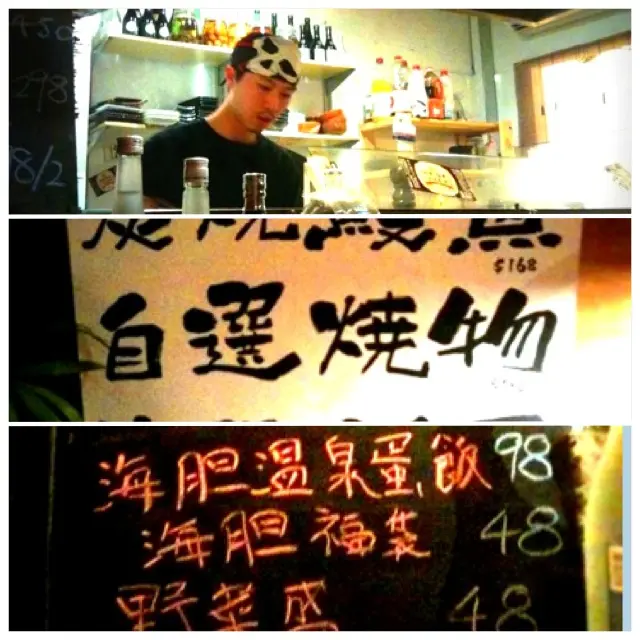 450
298
98/2
炭燒鰻魚
$168
自選燒物
海胆温泉蛋飯 98
海胆福袋 48
野菜盛 48